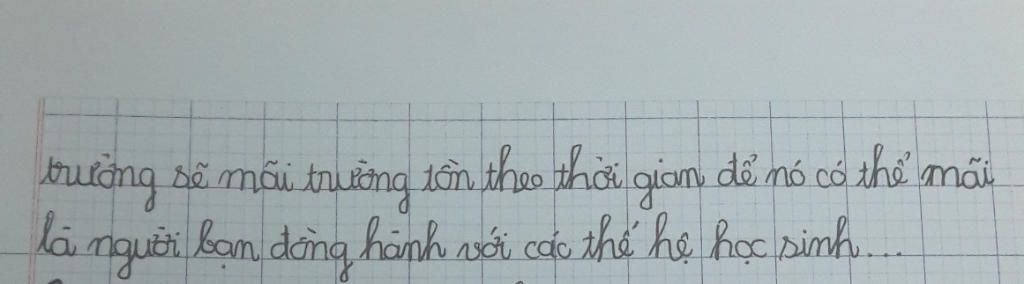 trường sẽ mãi trường tồn theo thời gian để nó có thể mãi
là người bạn đồng hành với các thế hệ học sinh...